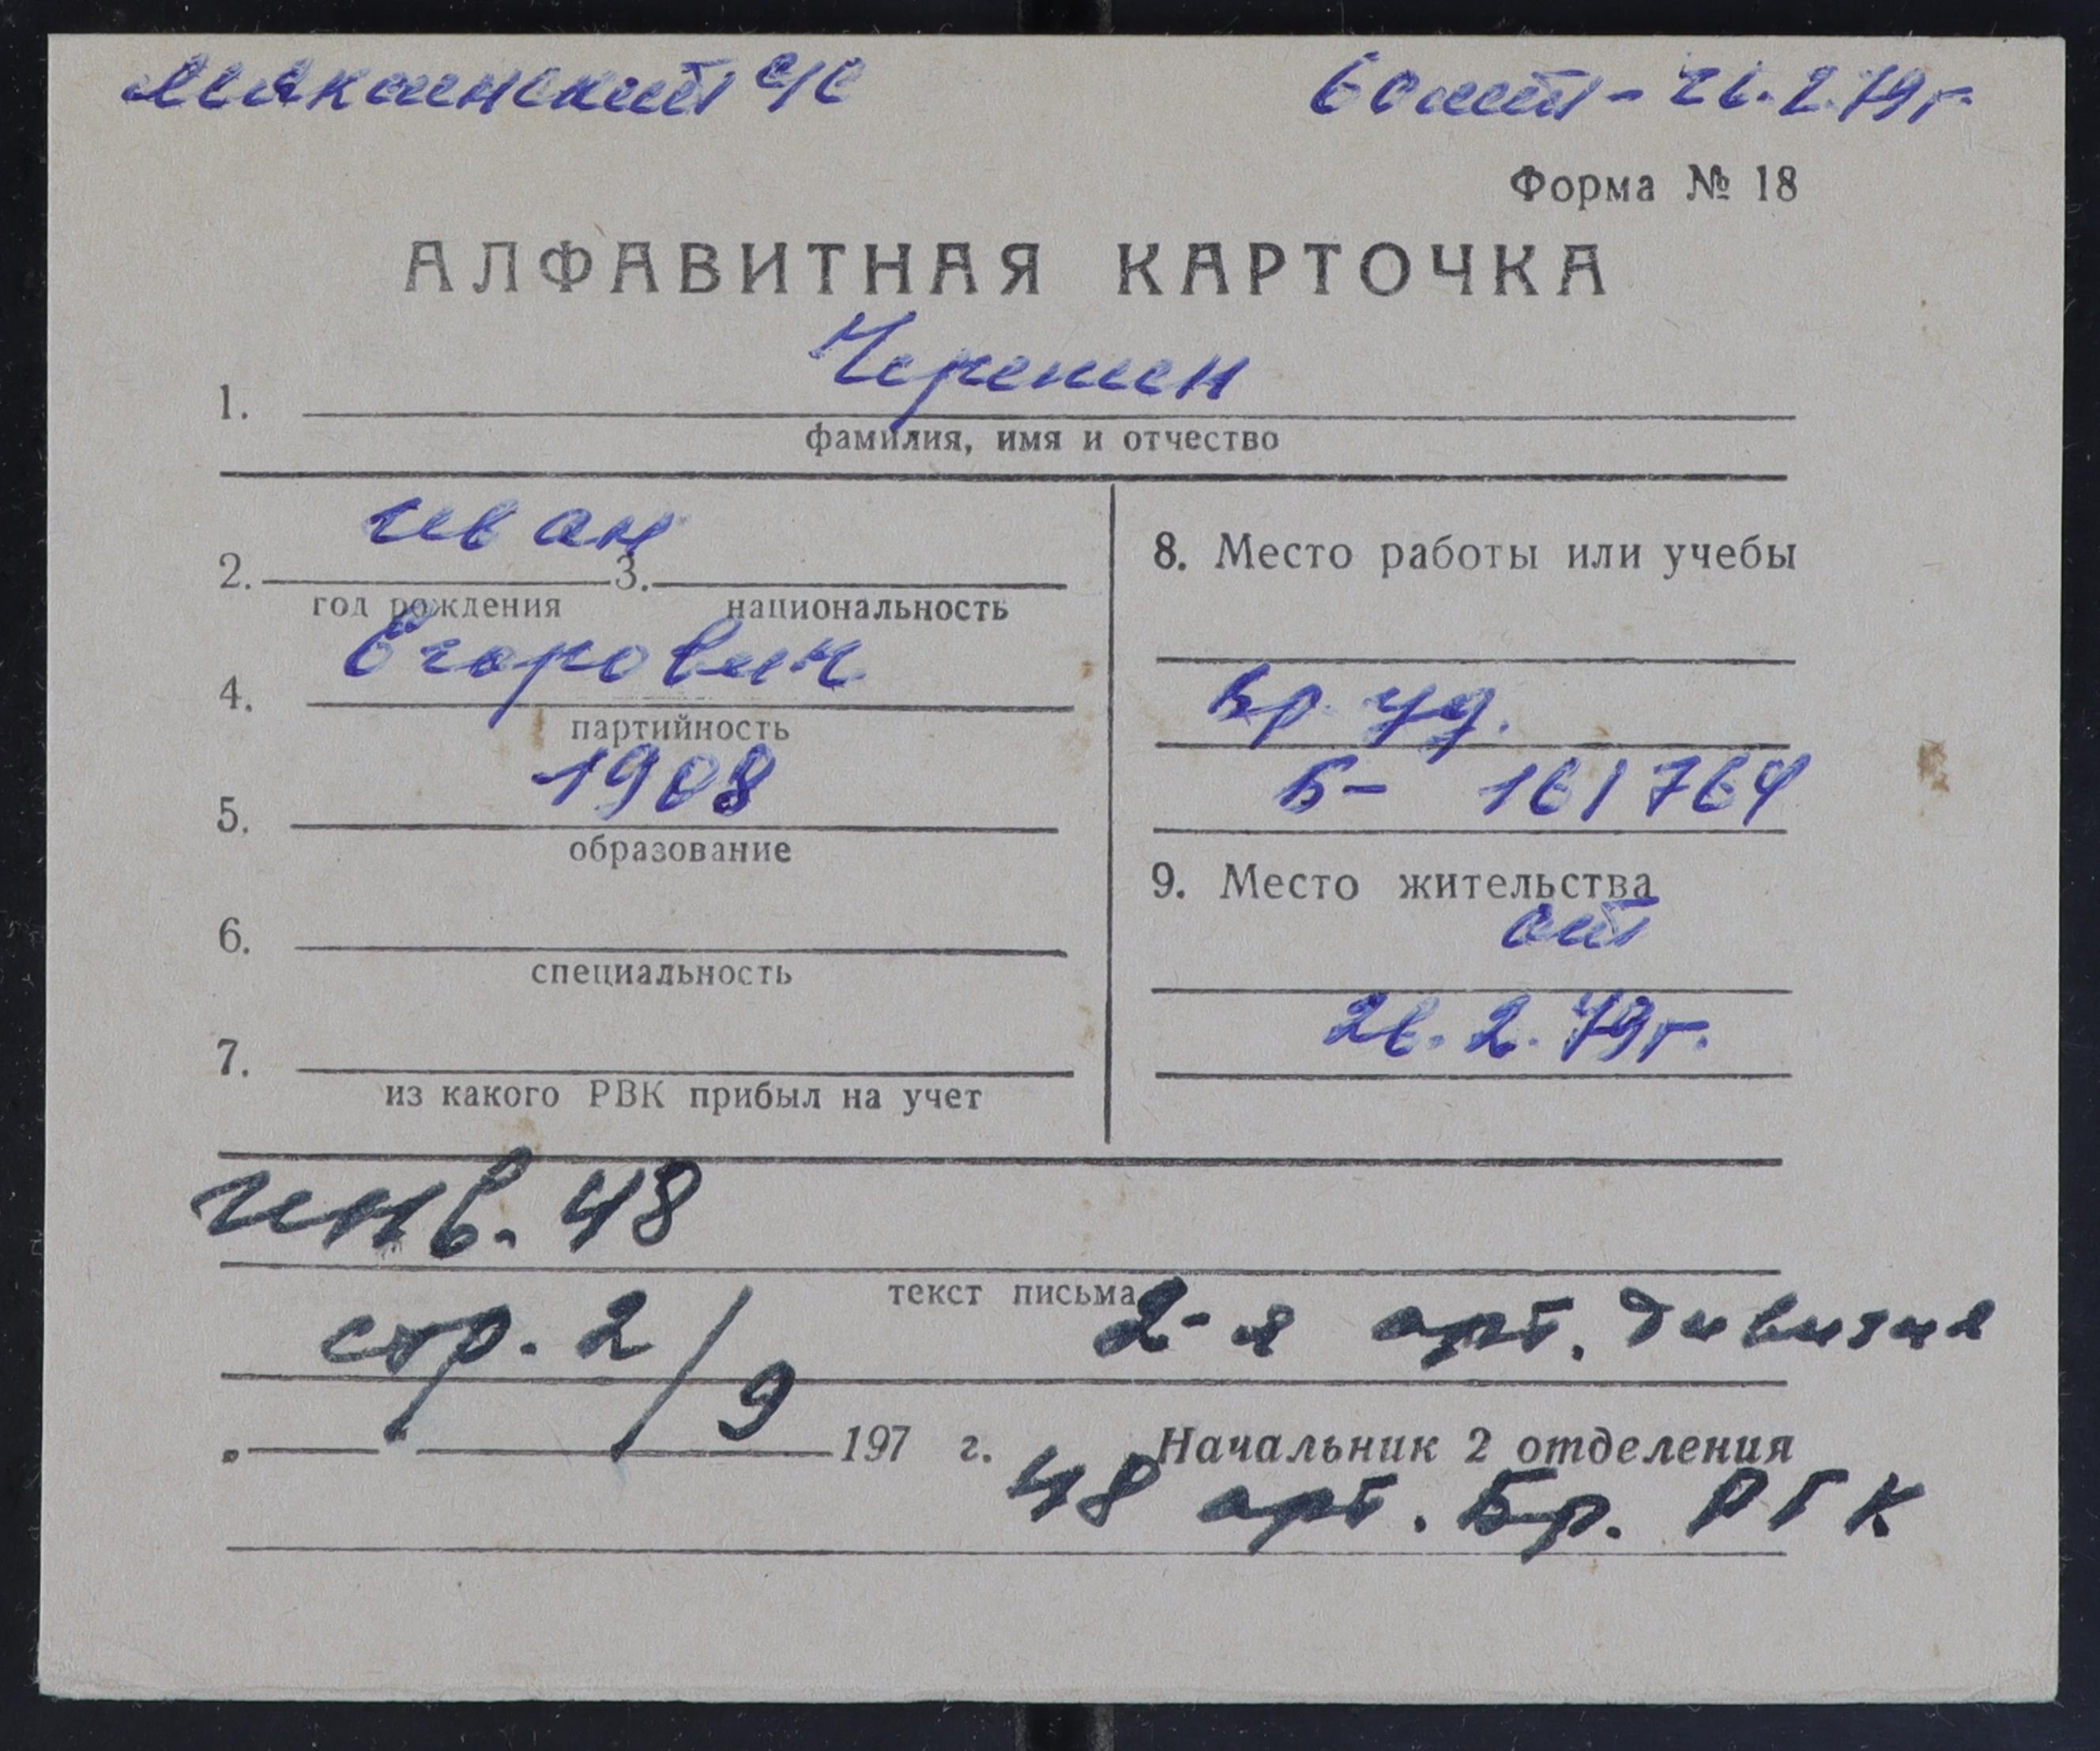 Мякшинский с/с 60 лет - 26.2.79г.
Форма № 18
АЛФАВИТНАЯ КАРТОЧКА
Черемен
1.
фамилия, имя и отчество
Иван
2. 3.
год рождения национальность
Егорович
4.
партийность
1908
5.
образование
6.
специальность
7.
из какого РВК прибыл на учет
8. Место работы или учебы
Вр. уд.
Б- 161764
9. Место жительства
от
26.2.79г.
инв. 48
текст письма
стр. 2/9 2-я арт. дивизия
197 г. Начальник 2 отделения
48 арт. Бр. РГК